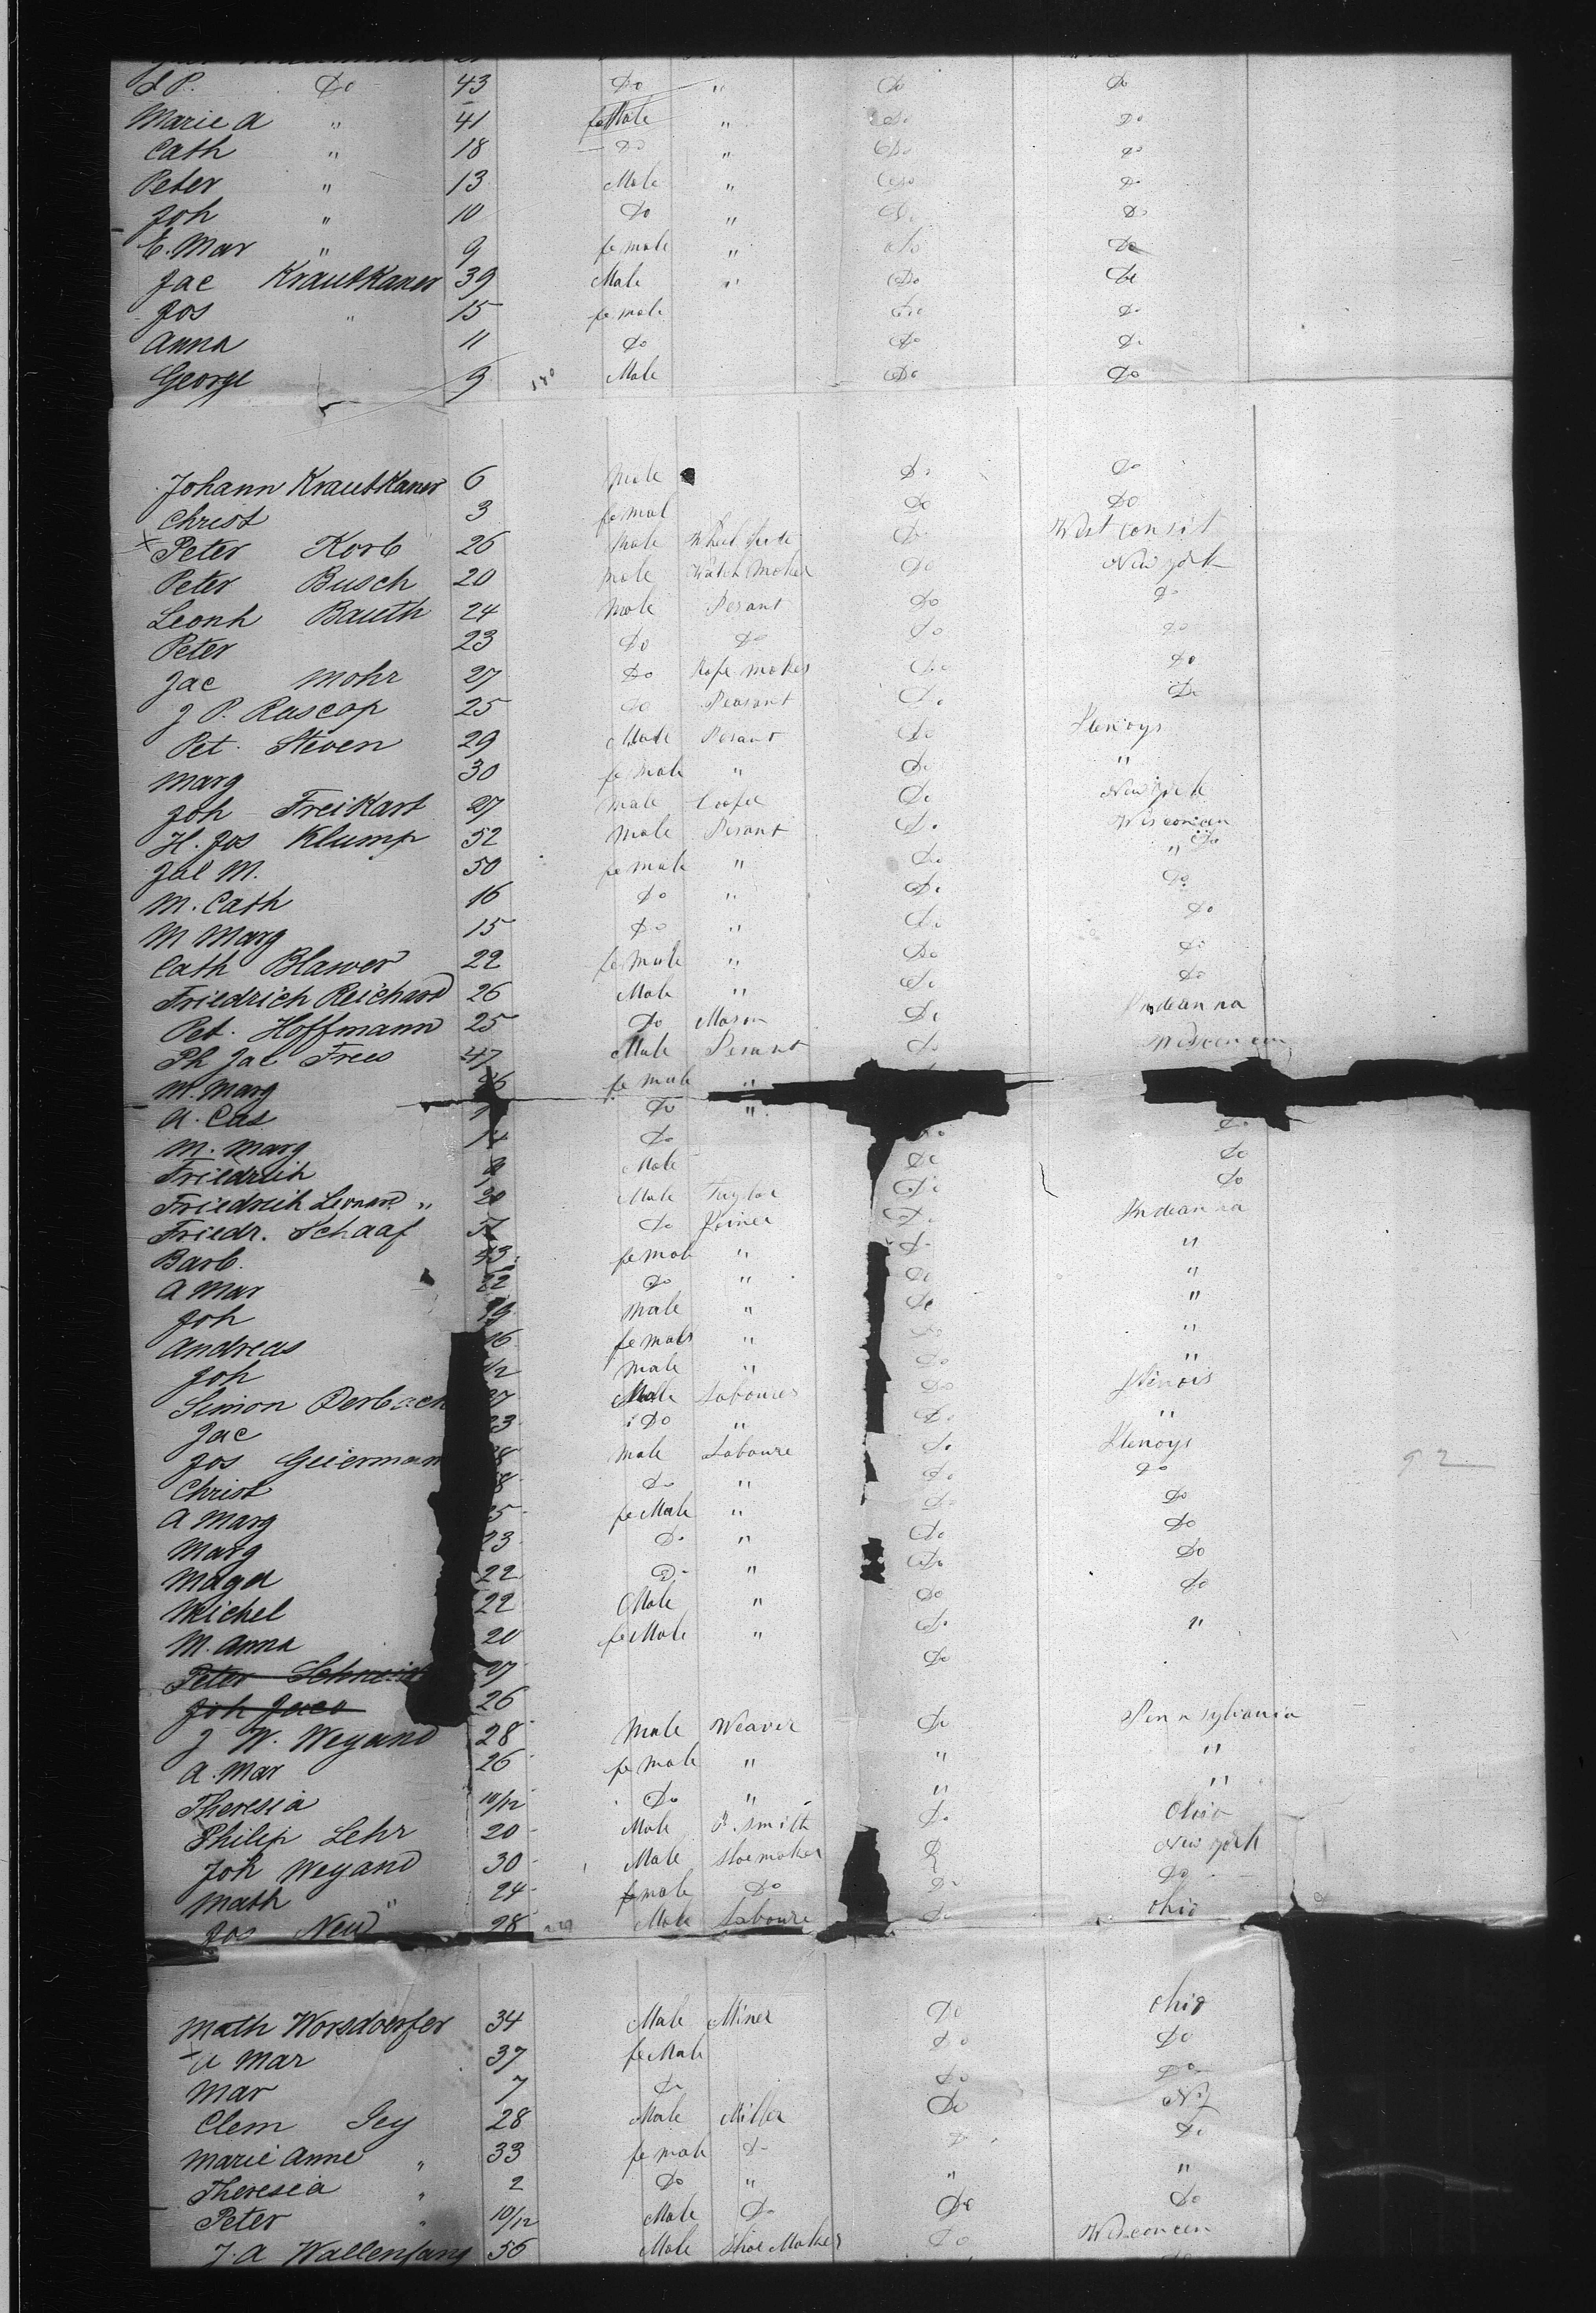 P. Do 43 Do " Do Do
Marie A " 41 feMale " Do Do
Cath " 18 Do " Do Do
Peter " 13 Male " Do Do
Joh " 10 Do " Do Do
E. Mar " 9 female " Do Do
Jac Krautkaner 39 Male " Do Do
Jos " 15 female Do Do
Anna 11 Do Do Do
George 9 Male Do Do
Johann Krautkaner 6 Male Do Do
Christ 3 femal Do Do
x Peter Korb 26 Male Do
Peter Busch 20 Male Watch Maker Do New york
Leonh Bauth 24 Male Pesant Do Do
Peter 23 Do Do Do Do
Jac Mohr 27 Do Rope maker Do Do
J P. Rascop 25 Do Peasant Do Do
Pet. Steven 29 Male Pesant Do Ilenoys
Marg 30 female " Do "
Joh Freikart 27 Male Do New york
H. Jos Klump 52 Male Pesant Do Wisconcen
Jul M. 50 female " Do " Do
M. Cath 16 Do " Do Do
M Marg 15 Do " Do Do
Cath Blawer 22 female " Do Do
Friedrich Reichard 26 Male " Do Do
Pet. Hoffmann 25 Do Mason Do Indeanna
Ph Jac Frees 47 Male Pesant Do Wisconcen
M. Marg female "
A. Cas Do "
M. Marg 14 Do Do Do
Friedrich Male Do Do
Friedrich Leonard " 20 Male Taylor Do Do
Friedr. Schaaf Do Joiner Do Indeanna
Barb. female " Do "
A Mar 22 Do " Do "
Joh Male " Do "
Andreas 16 female " Do "
Joh Male " Do "
Simon Derbach Male Labourer Do Ilinois
Jac Do " Do "
Jos Geierman Male Laboure Do Ilenoys
Christ Do " Do Do
A Marg feMale " Do Do
Marg 23 Do " Do Do
Magd 22 Do " Do Do
Michel 22 Male " Do Do
M. Anna 20 feMale " Do "
Peter 27 Do
Joh Jaco 26
J W. Weyand 28 Male Weaver Do Pennsylvania
A. Mar 26 female " " "
Theresia 10/12 Do " " "
Philip Lehr 20 Male B. Smith Do Ohio
Joh Weyand 30 Male Shoemaker Do New york
Math " 24 female Do Do Do
Jos Neu 28 Male Laboure Do Ohio
Math Worsdoerfer 34 Male Miner Do Ohio
A Mar 37 feMale Do Do
Mar 7 Do Do Do
Clem Gey 28 Male Miller Do NY
Marie Anne " 33 female Do Do Do
Theresia " 2 Do " " "
Peter " 10/12 Male Do Do Do
J. A Wallenfang 56 Male Shoe Maker Do Wisconcen
92